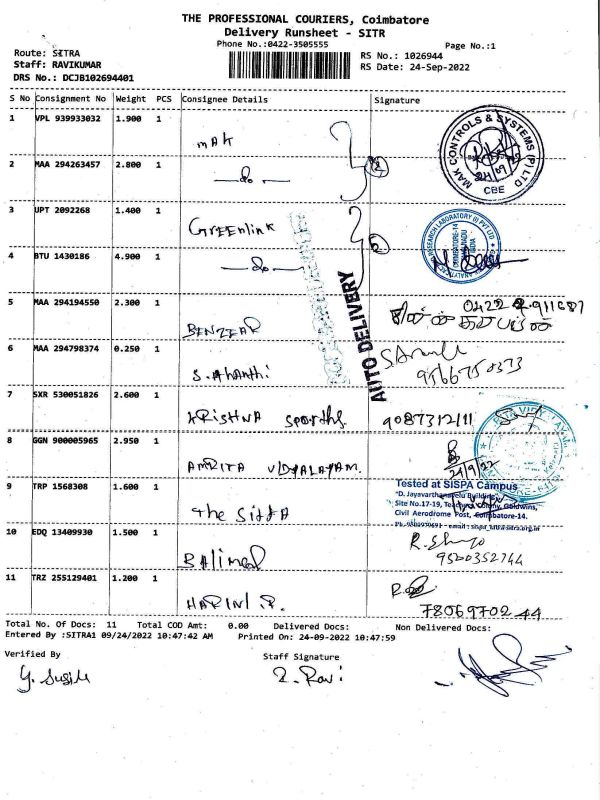 THE PROFESSIONAL COURIERS, Coimbatore
Delivery Runsheet - SITR
Phone No.:0422-3505555
Page No.:1
Route: SITRA
Staff: RAVIKUMAR
DRS No.: DCJB102694401
RS No.: 1026944
RS Date: 24-Sep-2022
S No Consignment No Weight PCS Consignee Details Signature
1 VPL 939933032 1.900 1
MAK
MAK CONTROLS & SYSTEMS (P) LTD
CBE
2 MAA 294263457 2.800 1
—do—
3 UPT 2092268 1.400 1
Greenlink
4 BTU 1430186 4.900 1
—do—
AUTO DELIVERY
5 MAA 294194550 2.300 1
BENZEAR
6 MAA 294798374 0.250 1
S. Ahanthi
9566750373
7 SXR 530051826 2.600 1
KRISHNA Sporths.
9087312111
8 GGN 900005965 2.950 1
AMRITA VIDYALAYAM.
24/9/22
9 TRP 1568308 1.600 1
The SITRA
Tested at SISPA Campus
"D. Jayavarthanavelu Building"
Site No.17-19, Colony, Goldwins,
Civil Aerodrome Post, Coimbatore-14.
10 EDQ 13409930 1.500 1
Balimed
9500352744
11 TRZ 255129401 1.200 1
HARINI .R.
7806970244
Total No. Of Docs: 11 Total COD Amt: 0.00 Delivered Docs: Non Delivered Docs:
Entered By :SITRA1 09/24/2022 10:47:42 AM Printed On: 24-09-2022 10:47:59
Verified By
Staff Signature
Y. Sugil
R. Ravi